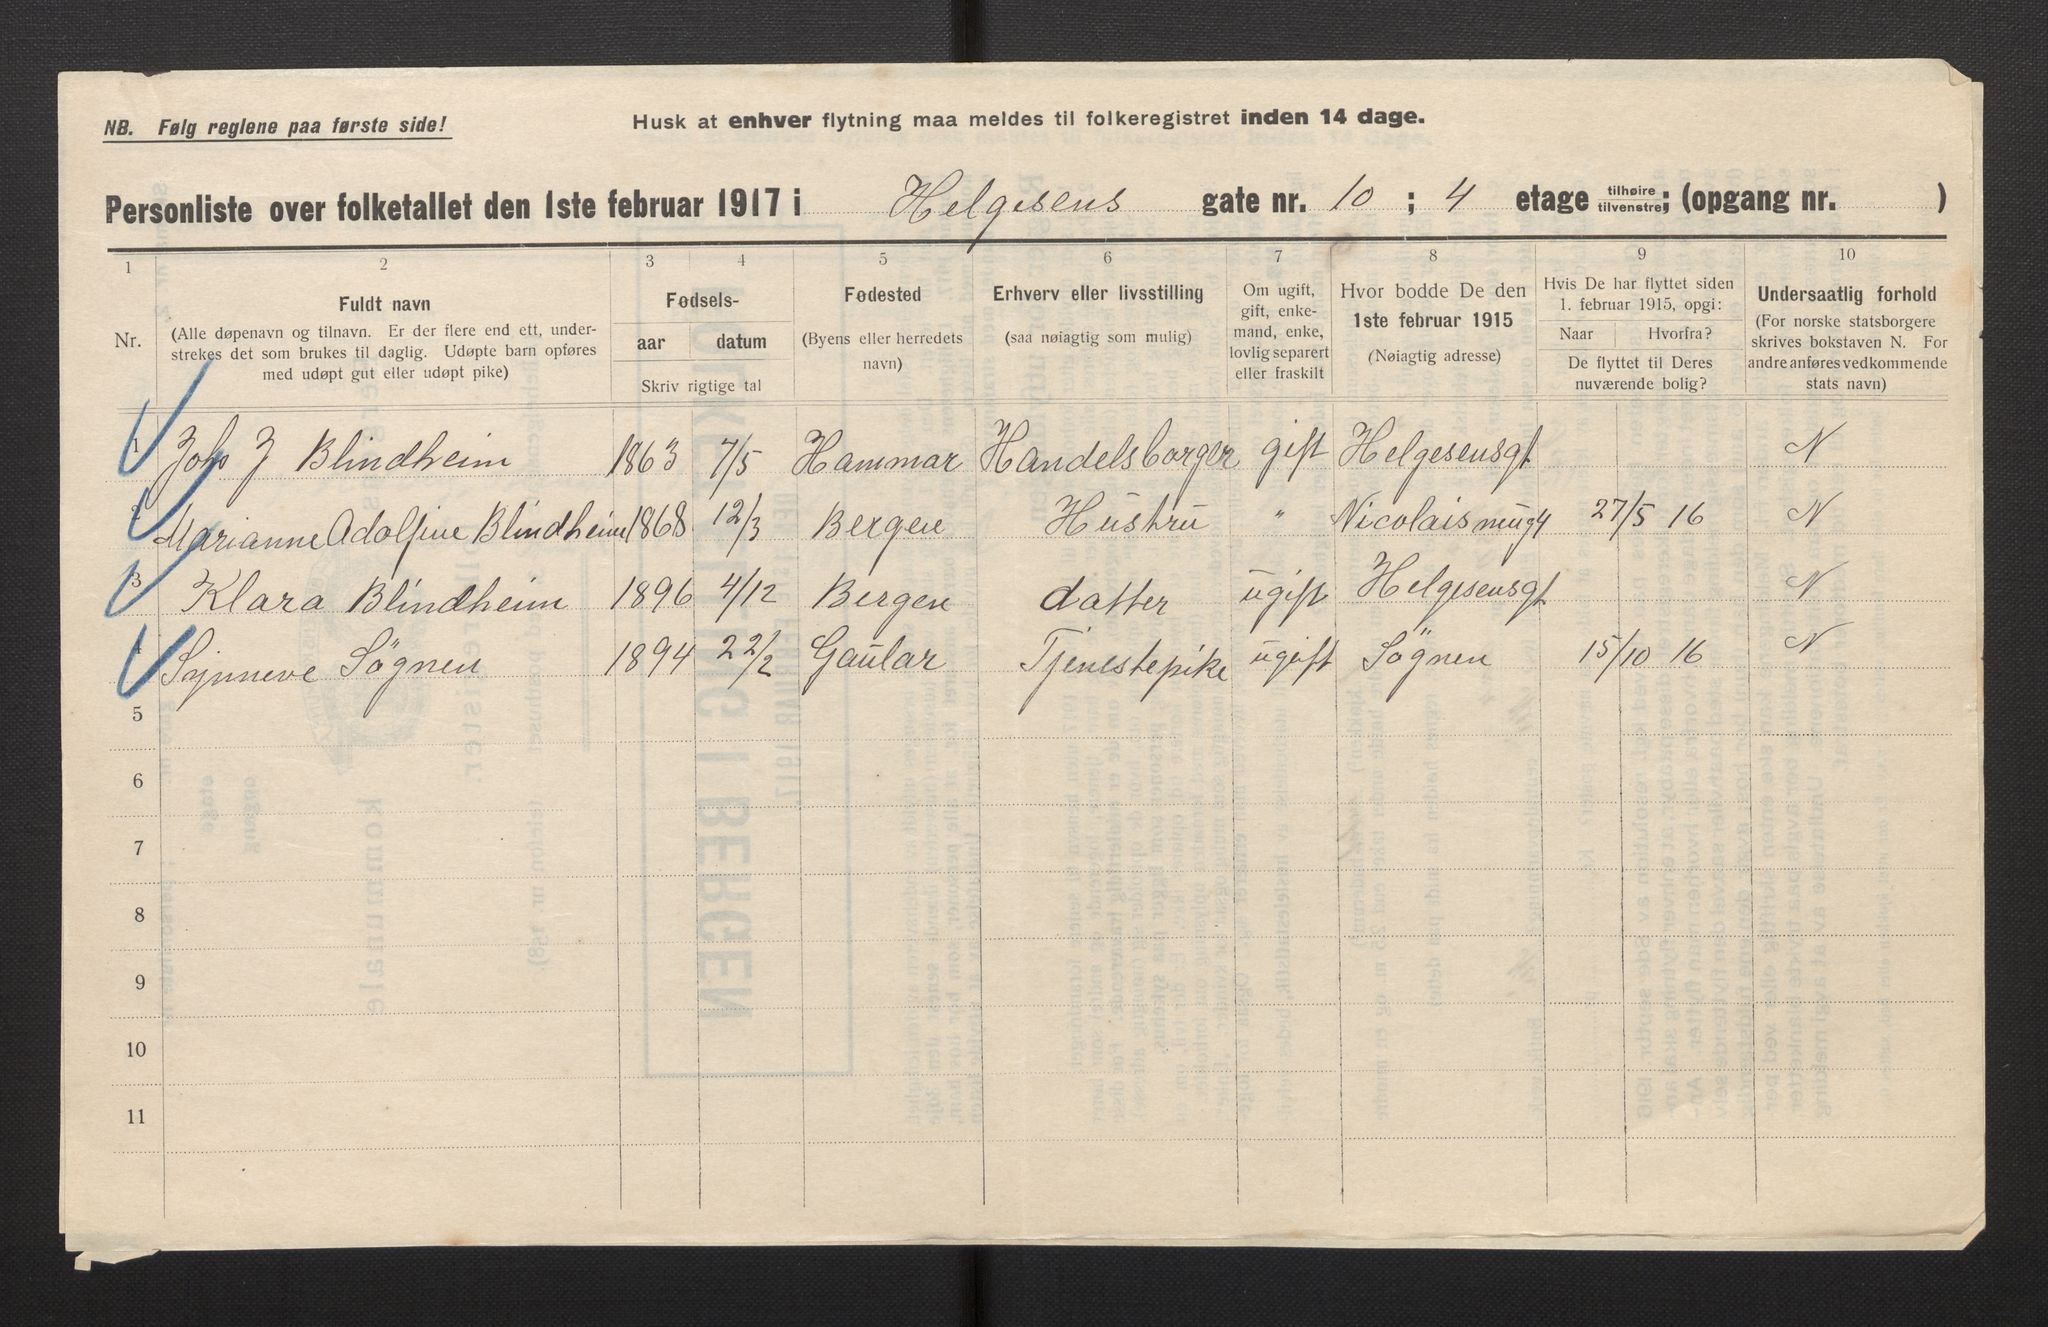 NB. Følg reglene paa første side!
Husk at enhver flytning maa meldes til folkeregistret inden 14 dage.
Personliste over folketallet den 1ste februar 1917 i Helgesens gate nr. 10 ; 4 etage tilhøire tilvenstre; (opgang nr. )
1 2 3 4 5 6 7 8 9 10
Nr.
Fuldt navn
(Alle døpenavn og tilnavn. Er der flere end ett, under-
strekes det som brukes til daglig. Udøpte barn opføres
med udøpt gut eller udøpt pike)
Fødsels-
aar datum
Skriv rigtige tal
Fødested
(Byens eller herredets
navn)
Erhverv eller livsstilling
(saa nøiagtig som mulig)
Om ugift,
gift, enke-
mand, enke,
lovlig separert
eller fraskilt
Hvor bodde De den
1ste februar 1915
(Nøiagtig adresse)
Hvis De har flyttet siden
1. februar 1915, opgi:
Naar Hvorfra?
De flyttet til Deres
nuværende bolig?
Undersaatlig forhold
(For norske statsborgere
skrives bokstaven N. For
andre anføres vedkommende
stats navn)
1 Johs J Blindheim 1863 7/5 Hammar Handelsborger gift Helgesensgt N
2 Marianne Adolfine Blindheim 1868 12/3 Bergen Hustru " 27/5 16 N
3 Klara Blindheim 1896 4/12 Bergen datter ugift Helgesensgt N
4 Synneve Søgnen 1894 22/2 Gaular Tjenestepike ugift Søgnen 15/10 16 N
5
6
7
8
9
10
11